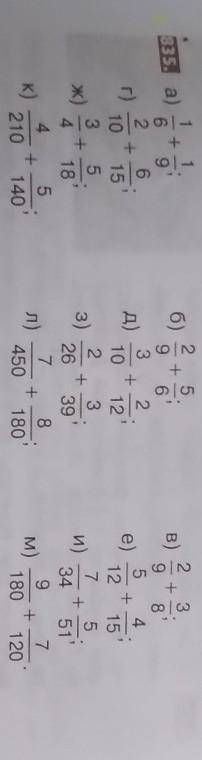 835. а) 1/6 + 1/9; б) 2/9 + 5/6; в) 2/9 + 3/8;
г) 2/10 + 6/15; д) 3/10 + 2/12; е) 5/12 + 4/15;
ж) 3/4 + 5/18; з) 2/26 + 3/39; и) 7/34 + 5/51;
к) 4/210 + 5/140; л) 7/450 + 8/180; м) 9/180 + 7/120.